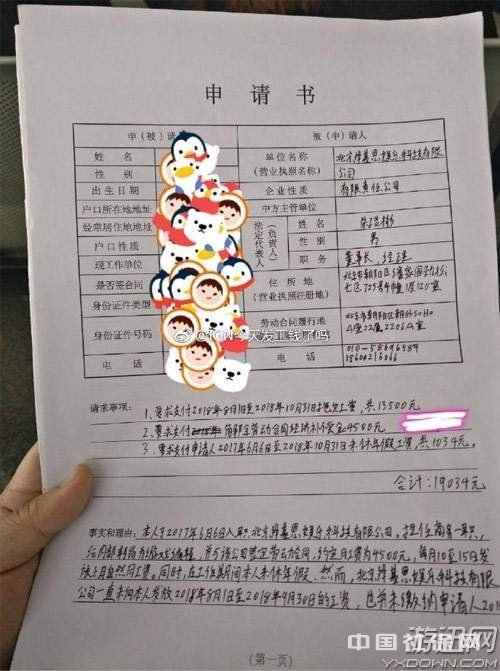 申请书
申(被)请人 被(申)请人
姓名 单位名称(营业执照名称) 北京 娱乐科技有限公司
性别
出生日期 企业性质 有限责任公司
户口所在地地址 中方主管单位
经常居住地地址 法定代表人(负责人) 姓名 朱
户口性质 性别 男
现工作单位 职务 董事长、经理
是否签合同 住所地(营业执照注册地) 北京市朝阳区
身份证件类型 七区725号4幢1层120室
身份证件号码 劳动合同履行地 北京市朝阳区朝外SOHO
A座22层2206A室
电话 电话 010-58696984
18600216066
@IGN今天发工钱了吗
请求事项:1、要求支付2018年8月1日至2018年10月31日拖欠工资,共13500元
2、要求支付 解除劳动合同经济补偿金4500元
3、要求支付申请人2017年6月6日至2018年10月31日未休年假工资,共1034元。
合计:19034元
事实和理由:本人于2017年6月6日入职北京 娱乐科技有限公司,担任商务一职,
后内部转岗为游戏编辑,并与该公司签定劳动合同,约定月工资为4500元,每月10至15日发
放上月自然月工资。同时,在工作期间本人未休年假。然而,北京 娱乐科技有限
公司一直未向本人发放2018年8月1日至2018年9月30日的工资,也并未缴纳申请人201
(第一页)
中国社保网
游迅网
YXDOWN.COM